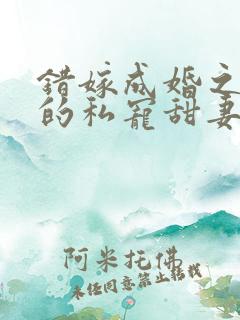 错嫁成婚之
的私宠甜妻
阿米托佛
未经同意禁止转载